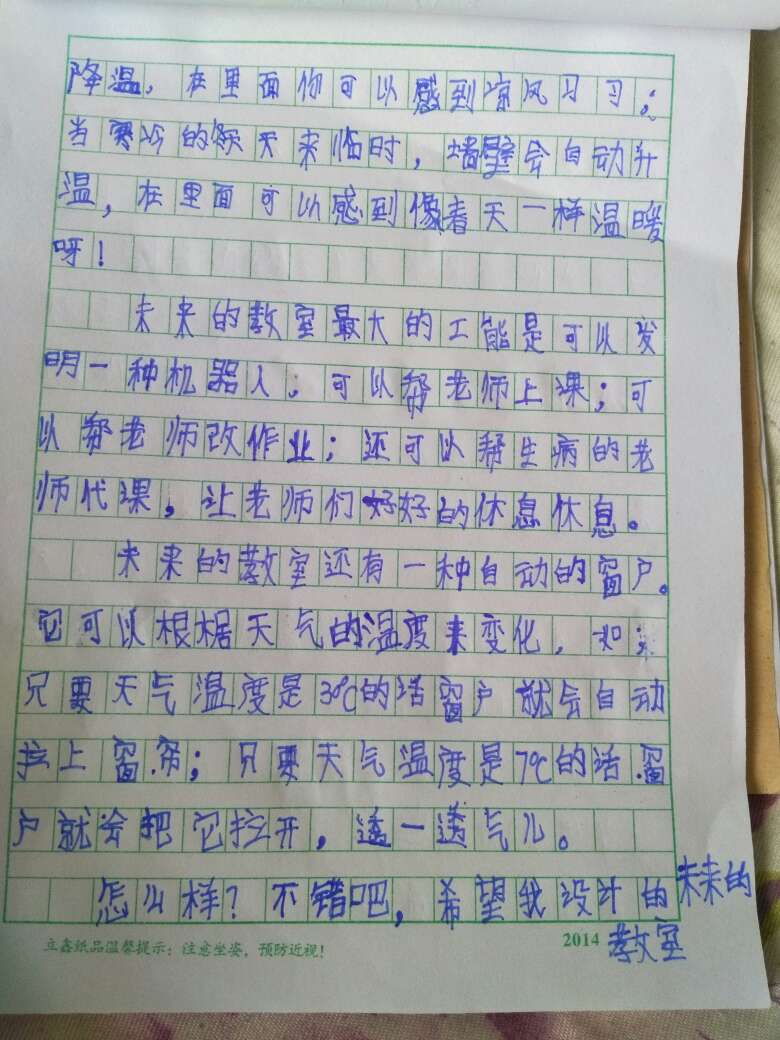 降温，在里面你可以感到凉风习习；
当寒冷的冬天来临时，墙壁会自动升
温，在里面可以感到像春天一样温暖
呀！
未来的教室最大的工能是可以发
明一种机器人，可以帮老师上课；可
以帮老师改作业；还可以帮生病的老
师代课，让老师们好好的休息休息。
未来的教室还有一种自动的窗户。
它可以根据天气的温度来变化，如：
只要天气温度是30℃的话窗户就会自动
拉上窗帘；只要天气温度是7℃的话窗
户就会把它拉开，透一透气儿。
怎么样？不错吧，希望我设计的未来的
教室
立鑫纸品温馨提示：注意坐姿，预防近视！ 2014